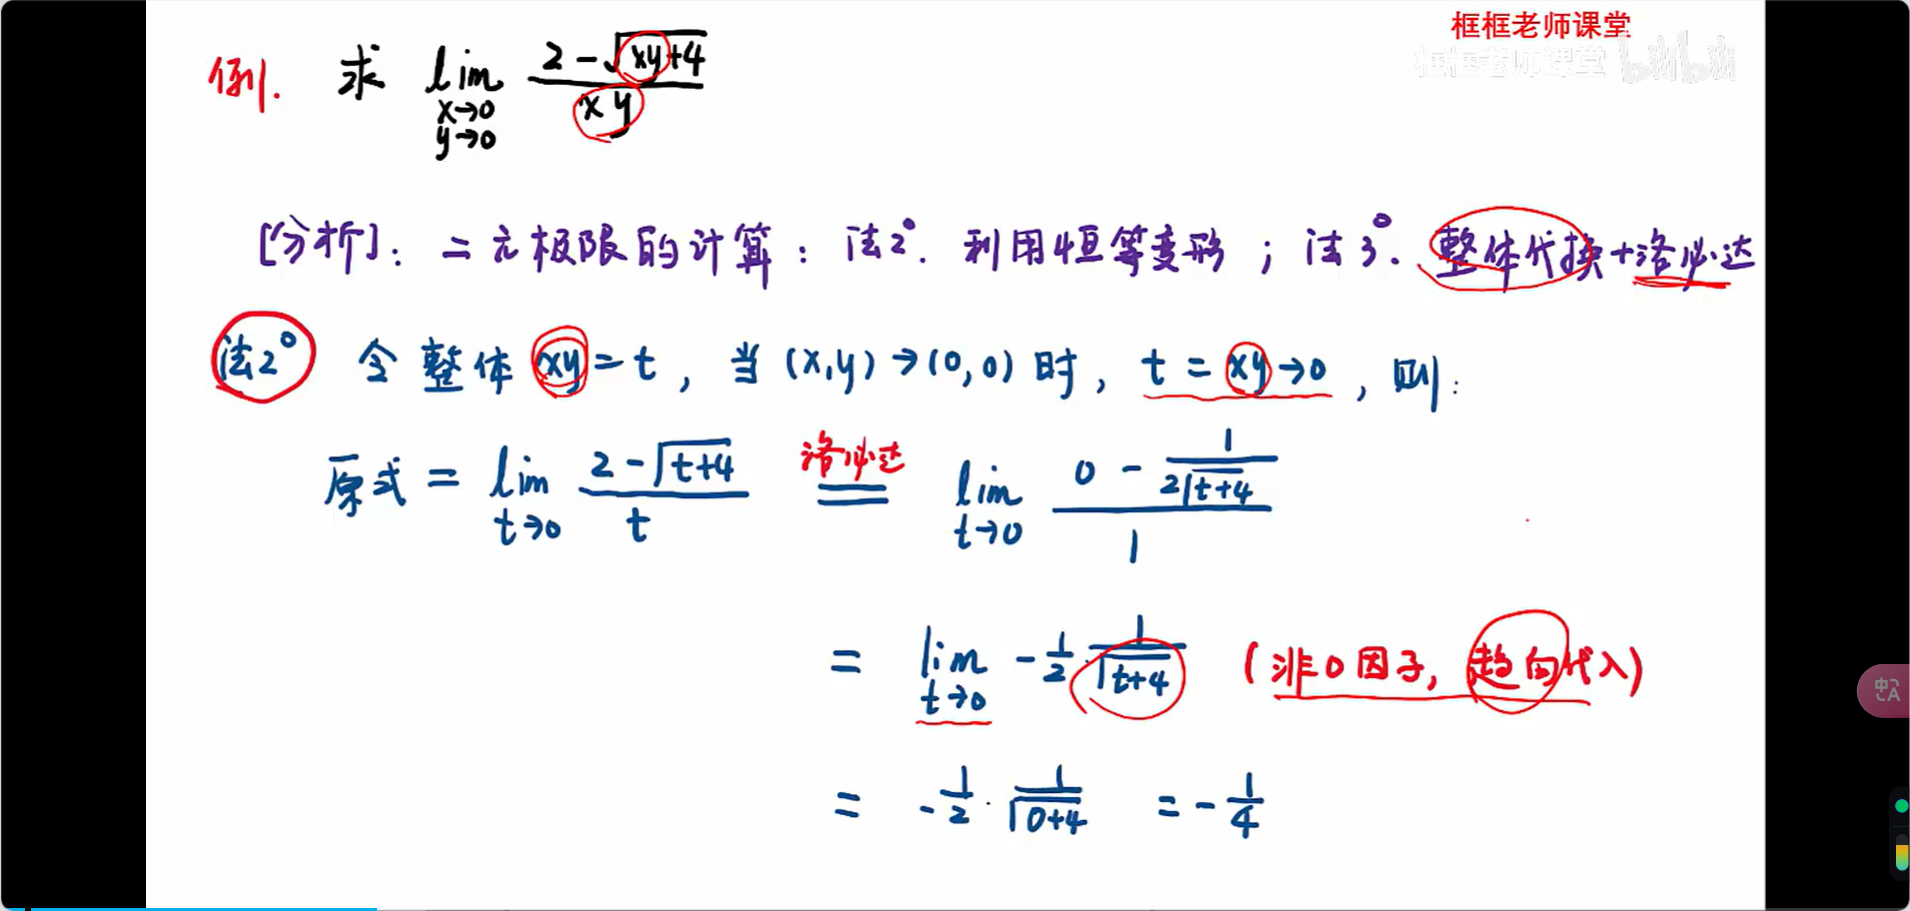 框框老师课堂
框框老师课堂 bilibili
例. 求 lim x→0 y→0 (2-√(xy+4))/(xy)
[分析]: 二元极限的计算: 法2°. 利用恒等变形; 法3°. 整体代换+洛必达
法2° 令整体 xy=t, 当(x,y)→(0,0)时, t=xy→0, 则:
原式 = lim t→0 (2-√(t+4))/t 洛必达 = lim t→0 (0-1/(2√(t+4)))/1
= lim t→0 -1/2·1/√(t+4) (非0因子, 趋向代入)
= -1/2·1/√(0+4) = -1/4
中A